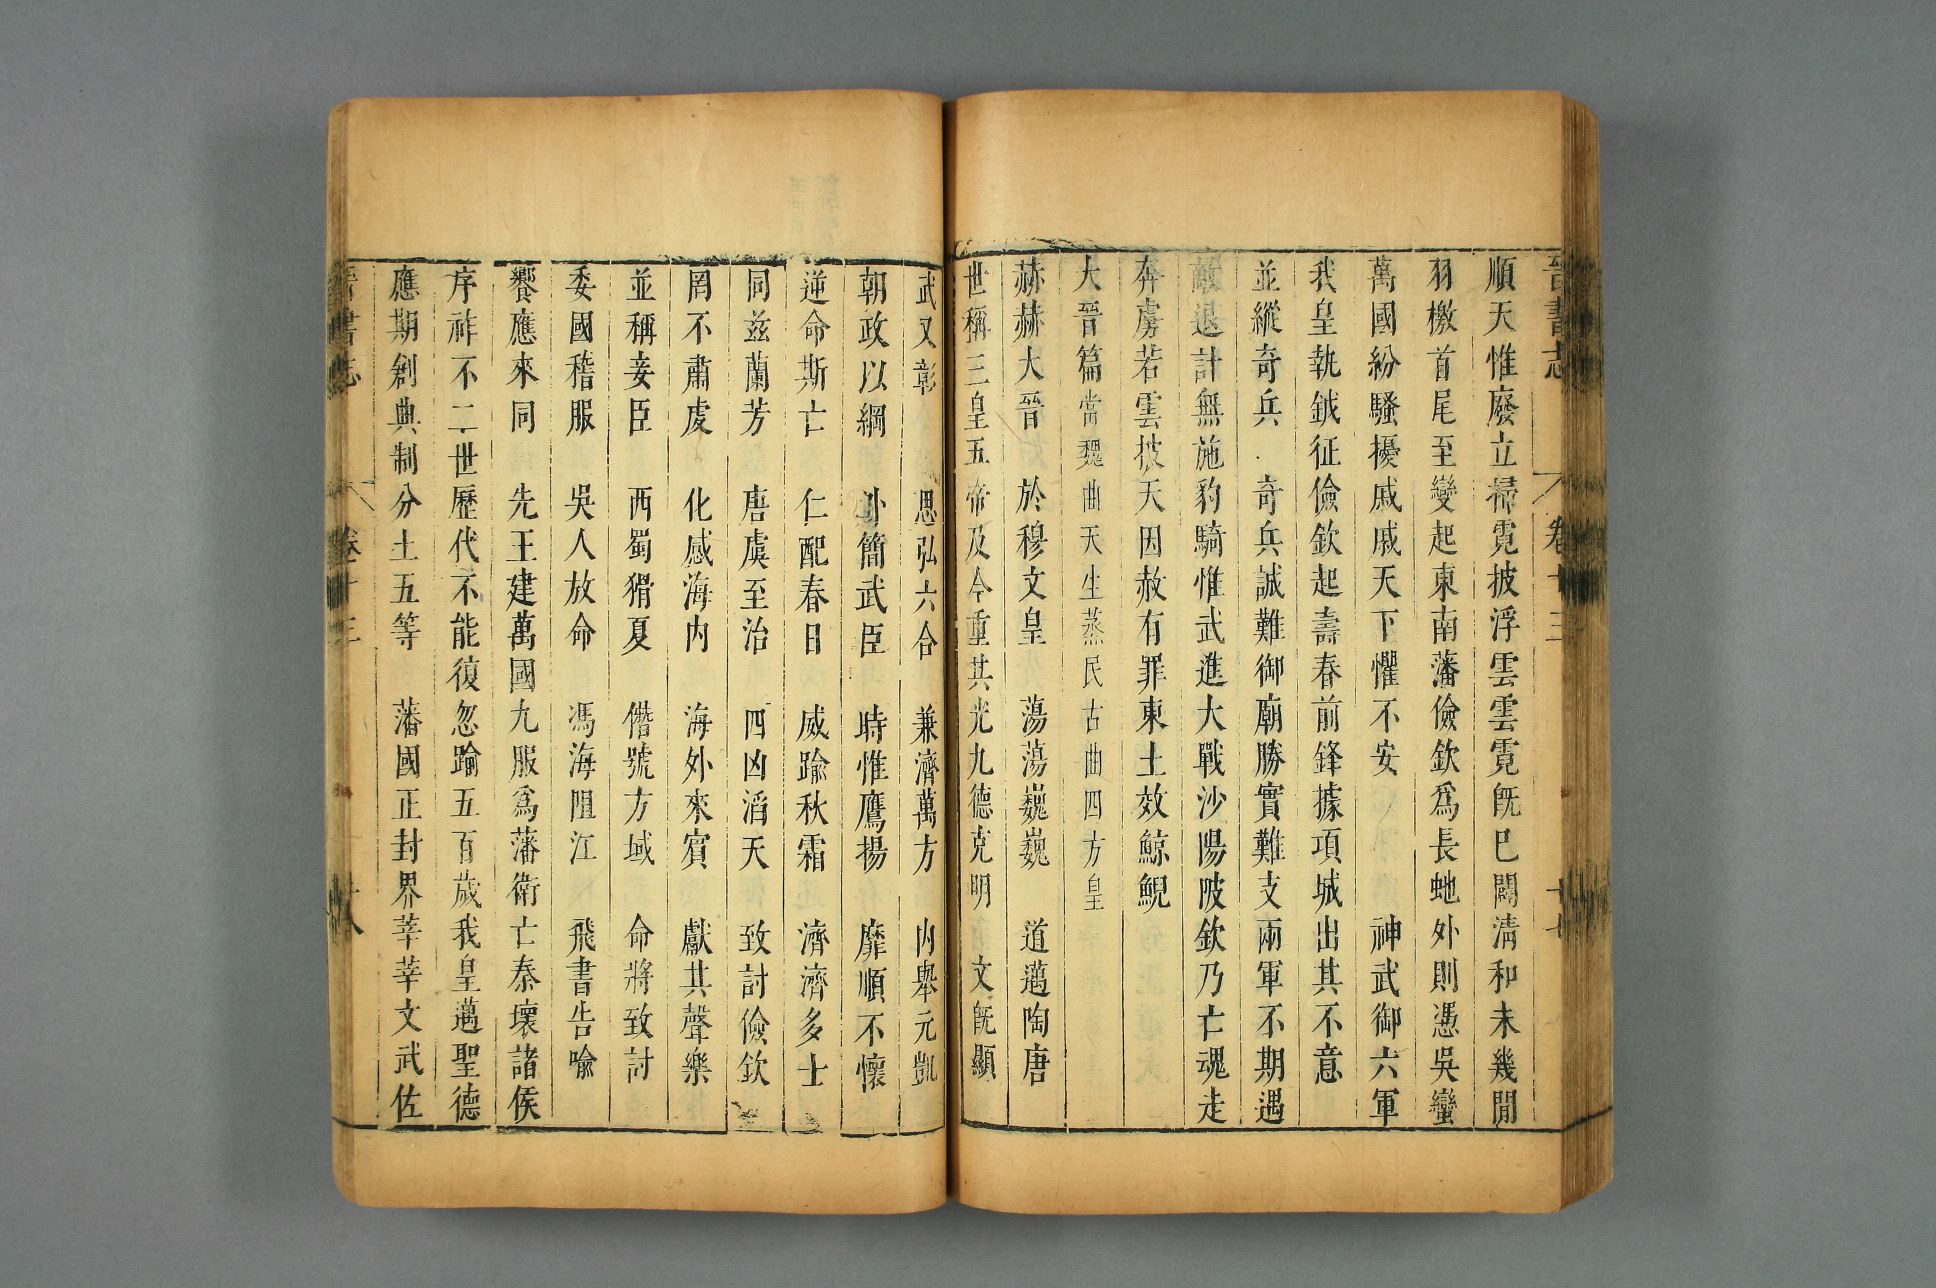 晉書志 卷十三 十七
順天惟廢立掃霓披浮雲雲霓旣巳闢淸和未幾閒
羽檄首尾至變起東南藩儉欽爲長虵外則憑吳蠻
萬國紛騷擾戚戚天下懼不安 神武御六軍
我皇執鉞征儉欽起壽春前鋒據項城出其不意
並縱奇兵 奇兵誠難御廟勝實難支兩軍不期遇
敵退計無施豹騎惟武進大戰沙陽陂欽乃亡魂走
奔虜若雲披天因赦有罪東土效鯨鯢
大晉篇當魏曲天生蒸民古曲四方皇
赫赫大晉 於穆文皇 蕩蕩巍巍 道邁陶唐
世稱三皇五帝及今重其光九德克明 文旣顯
武又彰 思弘六合 兼濟萬方 內舉元凱
朝政以綱 外簡武臣 時惟鷹揚 靡順不懷
逆命斯亡 仁配春日 威踰秋霜 濟濟多士
同兹蘭芳 唐虞至治 四凶滔天 致討儉欽
罔不肅虔 化感海內 海外來賓 獻其聲樂
並稱妾臣 西蜀猾夏 僭號方域 命將致討
委國稽服 吳人放命 馮海阻江 飛書告喻
響應來同 先王建萬國九服爲藩衛亡秦壞諸侯
序祚不二世歷代不能復忽踰五百歲我皇邁聖德
應期創典制分土五等 藩國正封界莘莘文武佐
晉書志 卷十三 十八